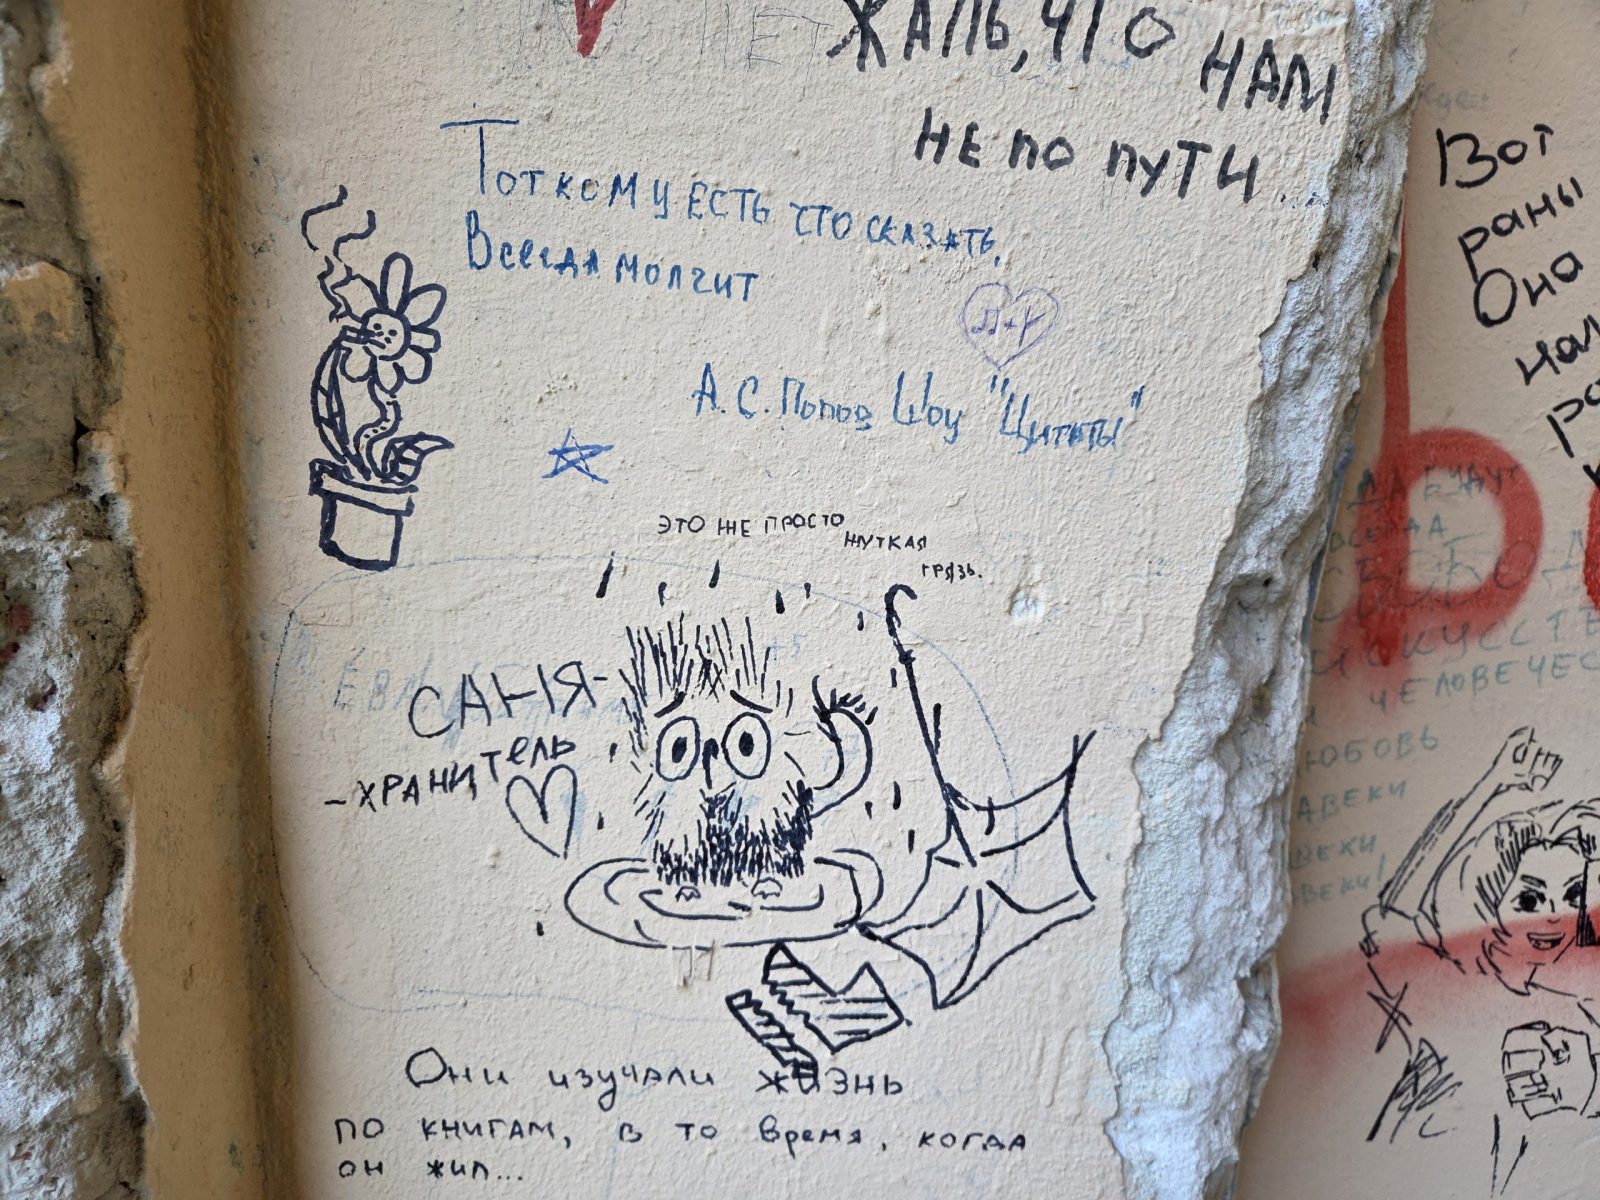 ЖАЛЬ, ЧТО НАМ
НЕ ПО ПУТИ...
Тот кому есть что сказать,
Всегда молчит
А.С. Попов Шоу "Цитаты"
ЭТО ЖЕ ПРОСТО
ЖУТКАЯ
ГРЯЗЬ.
САНЯ-
-ХРАНИТЕЛЬ
Они изучали жизнь
по книгам, в то время, когда
он жил...
Вот
раны
Она
ДА БУДУТ
ВСЕГДА
ИСКУССТВ
ЧЕЛОВЕЧЕС
ЛЮБОВЬ